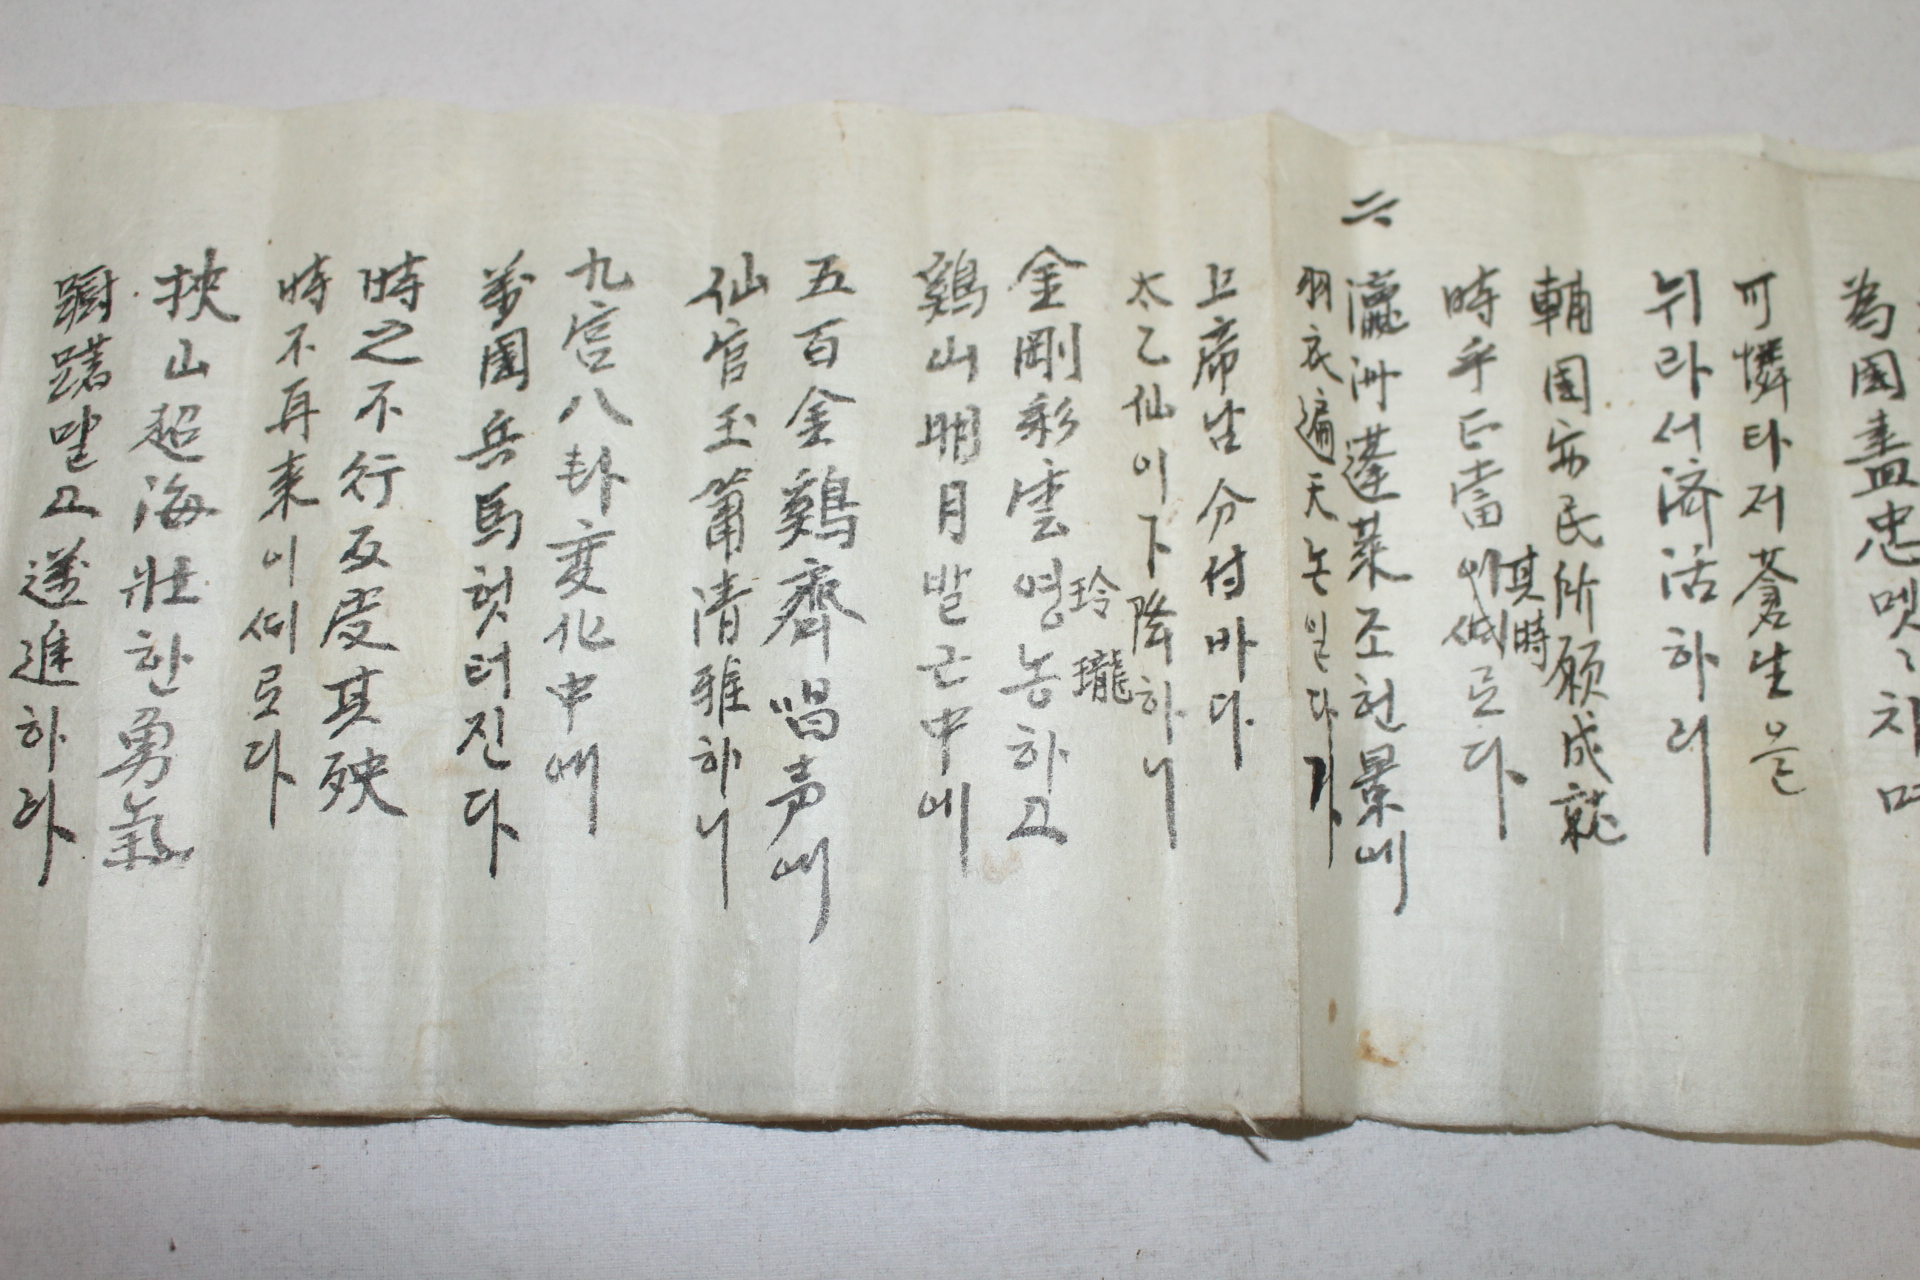 為国盡忠
可憐타저蒼生을
뉘라서済活하리
輔国安民所願成就
時乎正當其時로다
六
瀛洲蓬萊조흔景에
羽衣遍天논일다가
上帝님分付바다
太乙仙이下降하니
金剛彩雲영농하고
玲瓏
鷄山明月발근中에
五百金鷄齊唱声에
仙官玉簫清雅하니
九宮八卦変化中에
萬国兵馬헛터진다
時之不行反受其殃
時不再来이씨로다
挾山超海壯한勇氣
躕躇말고遂進하라